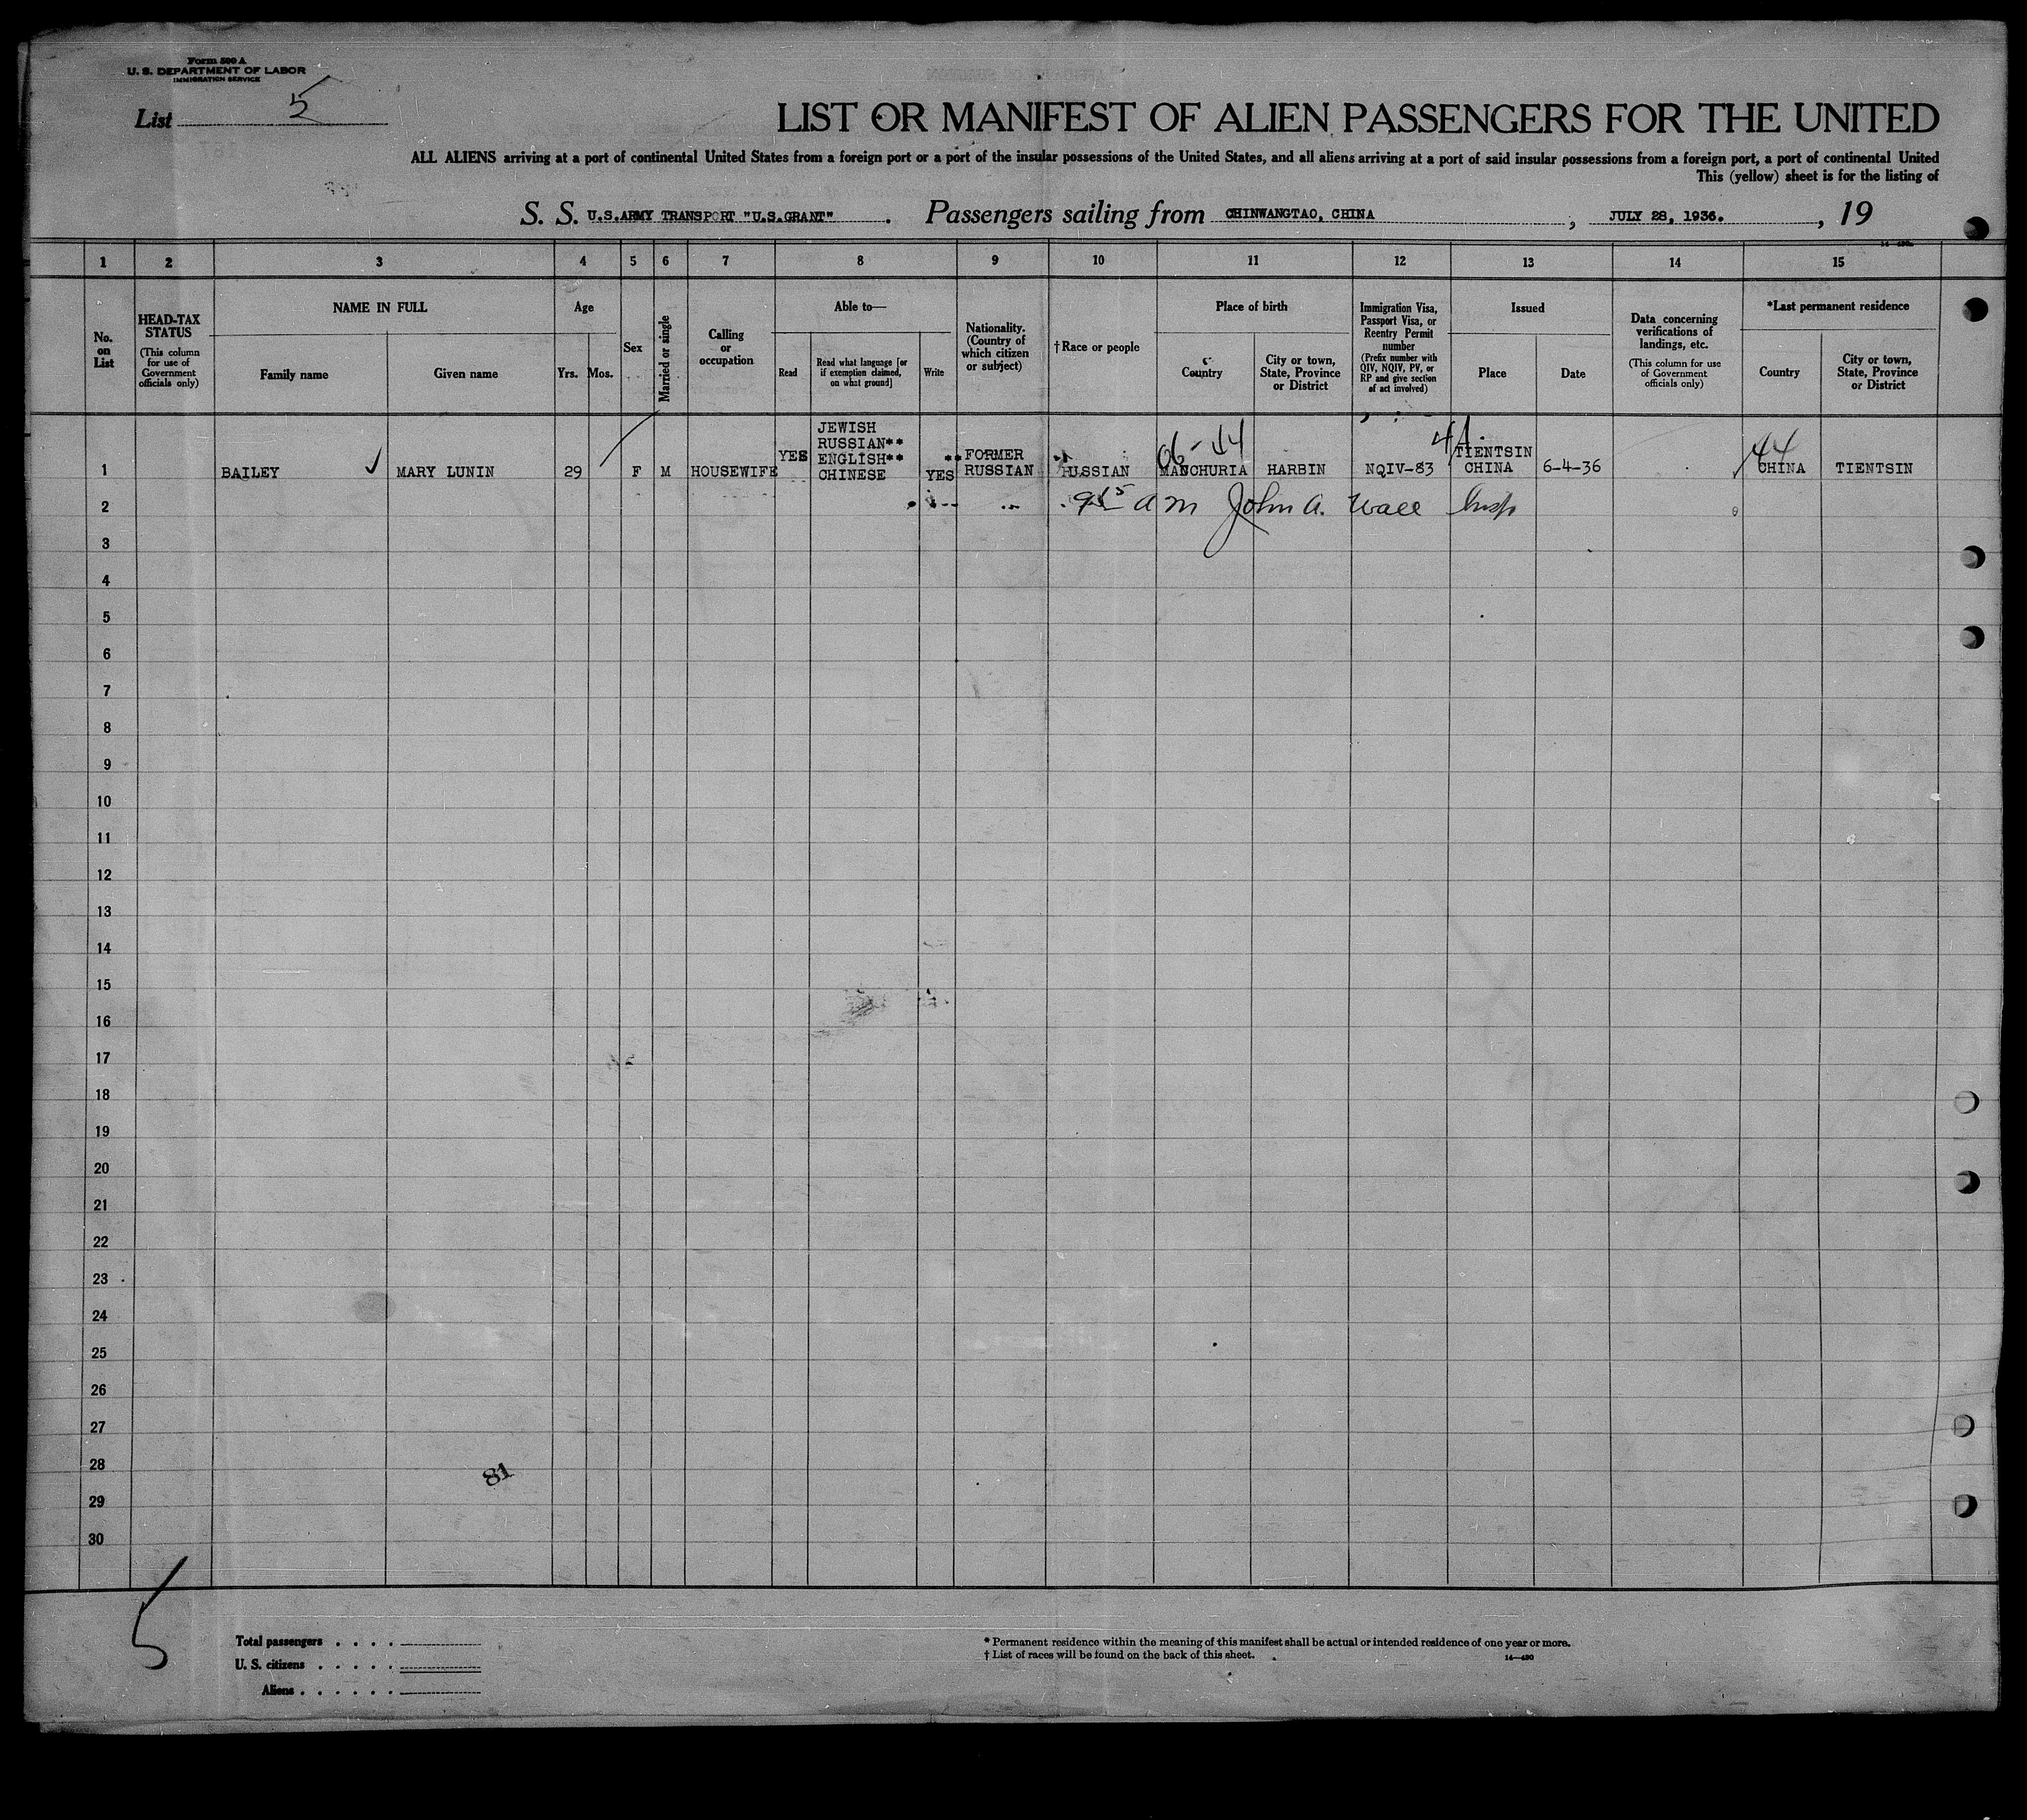 Form 500 A
U. S. DEPARTMENT OF LABOR
IMMIGRATION SERVICE
List 5
LIST OR MANIFEST OF ALIEN PASSENGERS FOR THE UNITED
ALL ALIENS arriving at a port of continental United States from a foreign port or a port of the insular possessions of the United States, and all aliens arriving at a port of said insular possessions from a foreign port, a port of continental United
This (yellow) sheet is for the listing of
S. S. U.S.ARMY TRANSPORT "U.S.GRANT". Passengers sailing from CHINWANGTAO, CHINA, JULY 28, 1936., 19
1 2 3 4 5 6 7 8 9 10 11 12 13 14 15
No. on List
HEAD-TAX STATUS
(This column for use of Government officials only)
NAME IN FULL
Family name
Given name
Age
Yrs.
Mos.
Sex
Married or single
Calling or occupation
Able to—
Read
Read what language [or if exemption claimed, on what ground]
Write
Nationality. (Country of which citizen or subject)
† Race or people
Place of birth
Country
City or town, State, Province or District
Immigration Visa, Passport Visa, or Reentry Permit number
(Prefix number with QIV, NQIV, PV, or RP and give section of act involved)
Issued
Place
Date
Data concerning verifications of landings, etc.
(This column for use of Government officials only)
*Last permanent residence
Country
City or town, State, Province or District
1 BAILEY MARY LUNIN 29 F M HOUSEWIFE YES JEWISH RUSSIAN** ENGLISH** CHINESE ** YES FORMER RUSSIAN RUSSIAN MANCHURIA HARBIN NQIV-83 TIENTSIN CHINA 6-4-36 44 CHINA TIENTSIN
2 9 15 am John A. Wall Insp
3
4
5
6
7
8
9
10
11
12
13
14
15
16
17
18
19
20
21
22
23
24
25
26
27
28
81
29
30
5
Total passengers
U. S. citizens
Aliens
* Permanent residence within the meaning of this manifest shall be actual or intended residence of one year or more.
† List of races will be found on the back of this sheet.
14—430